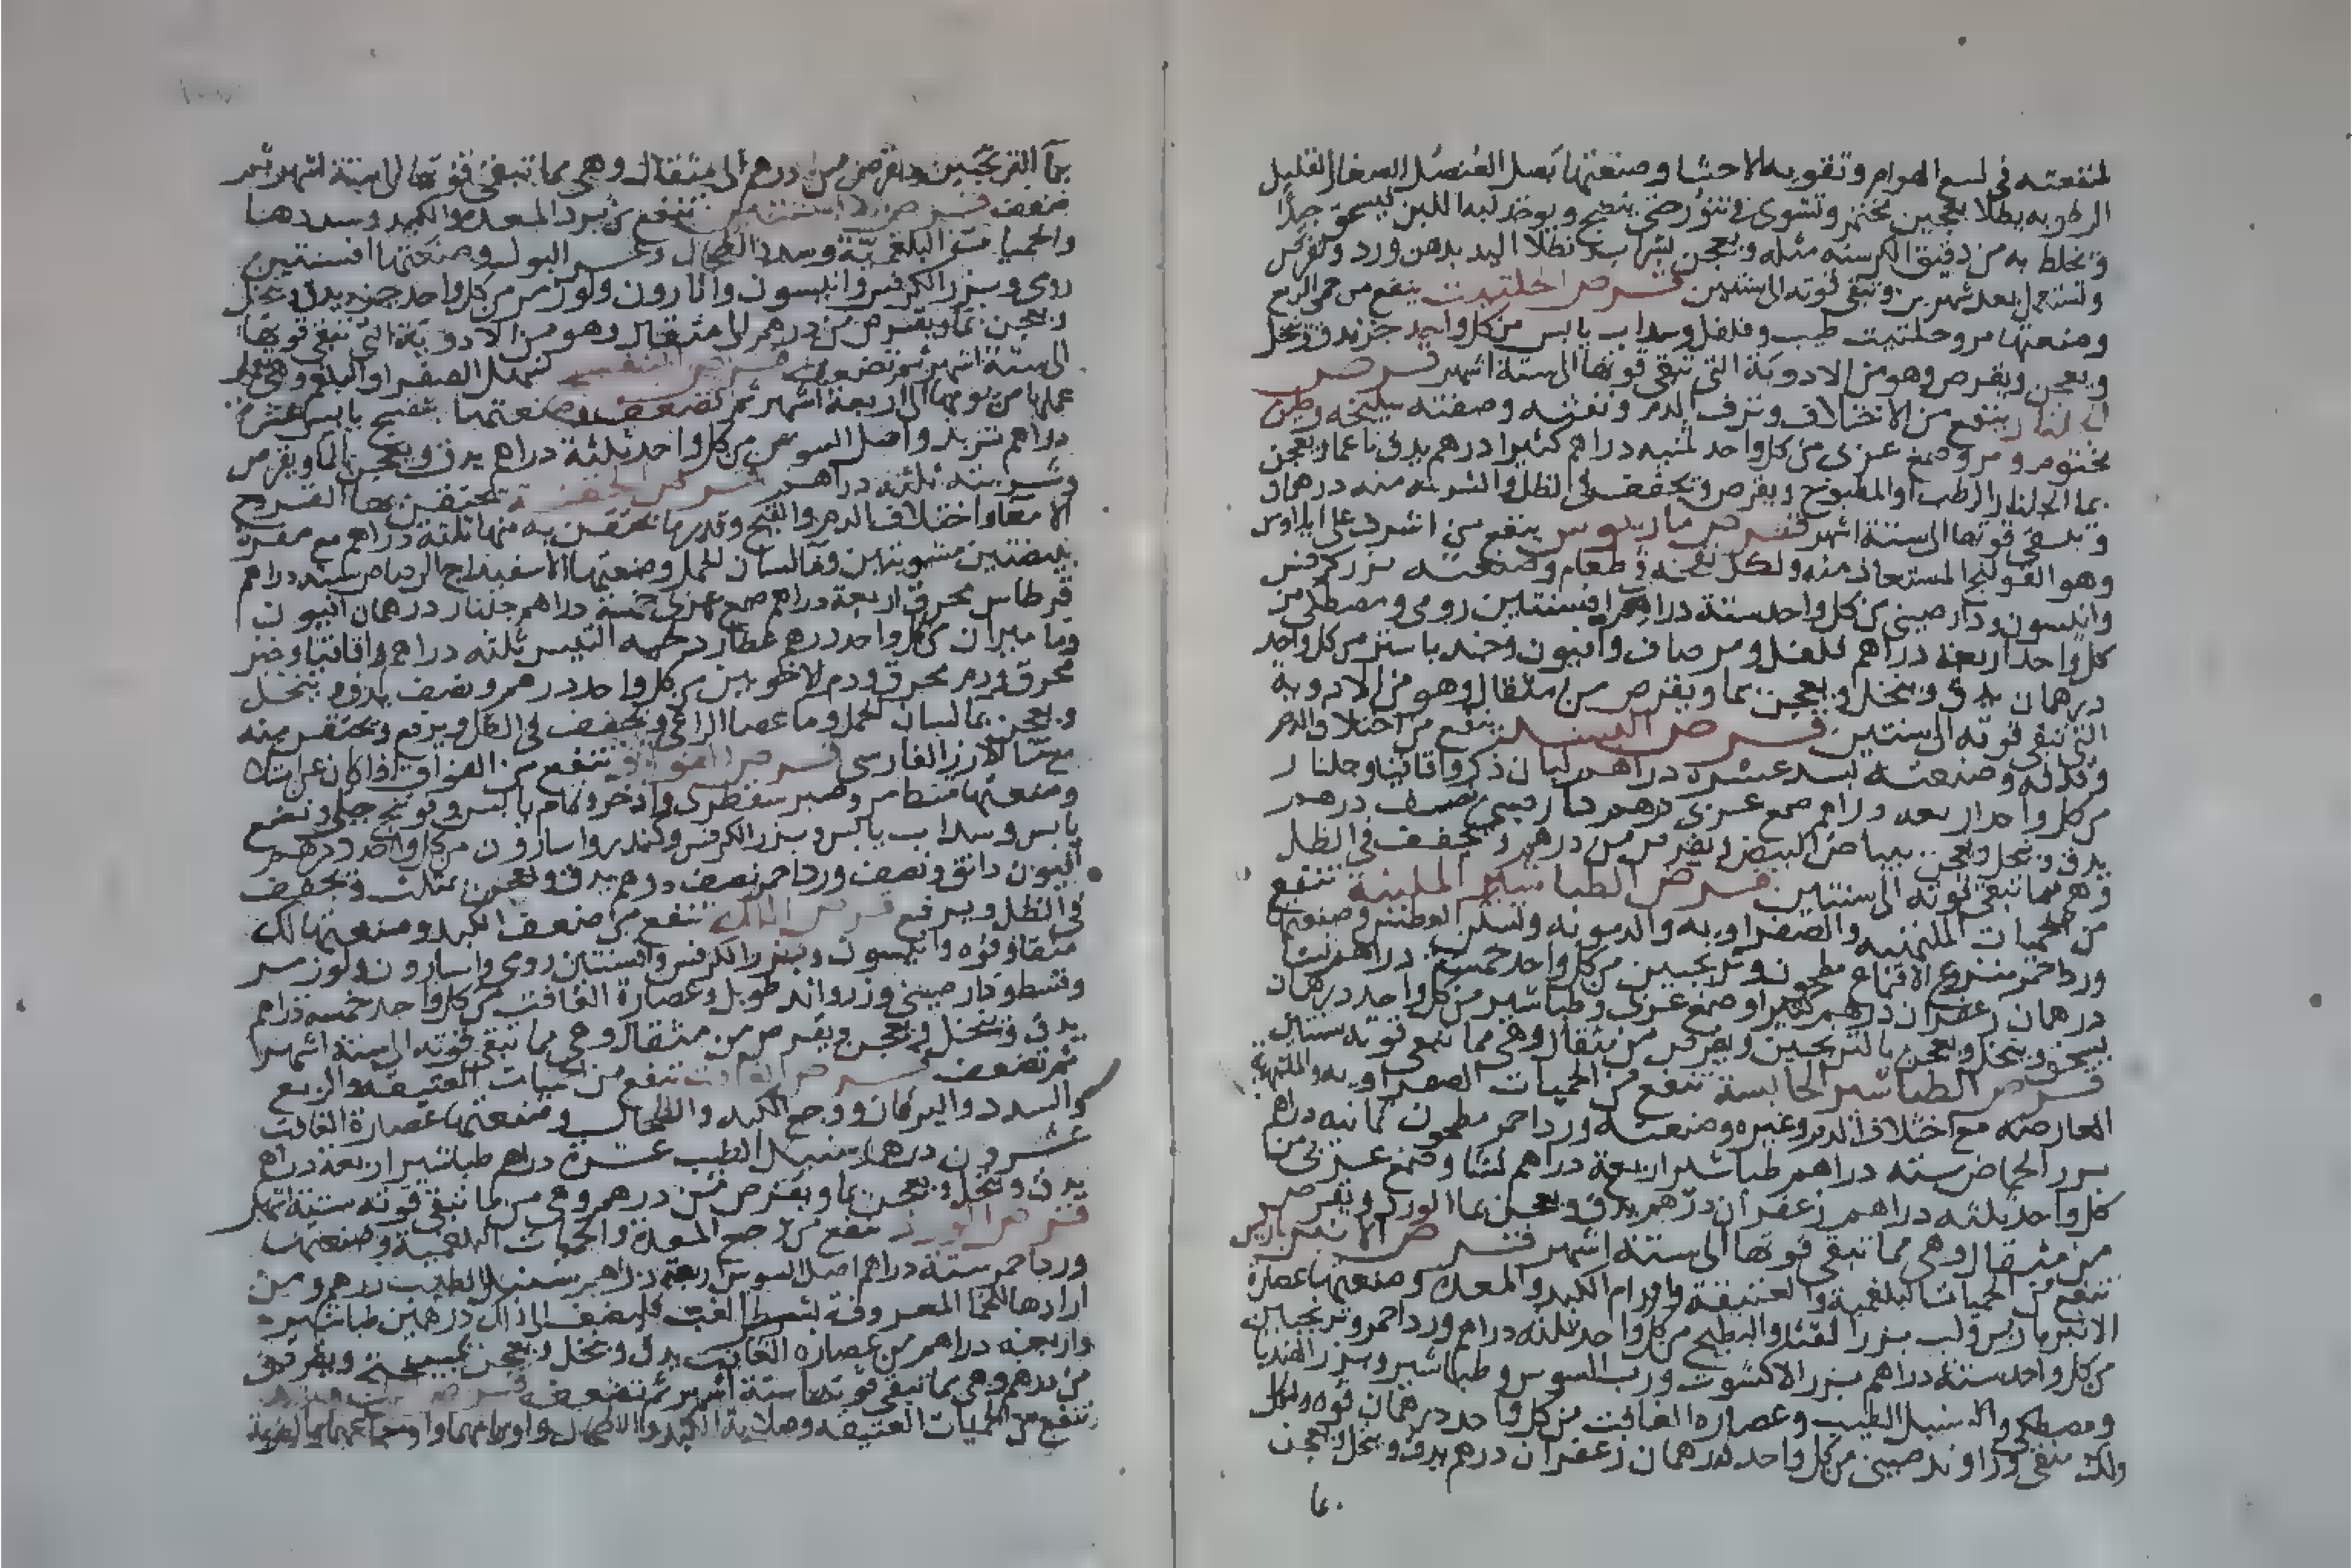 لمنفعته في لسع الهوام وتقويه الاحشا وصنعتها بصل العنصل الصغار القليل
الرطوبه يطلا بعجين مختمر وتشوى في تنور حتى ينضج ويوخذ لبه اللين ليسحق جدا
وتخلط به من دقيق الكرسنه مثله ويعجن بشراب بعد تطلا اليد بدهن ورد وتقرص
وتستعمل بعد شهرين وتبقى قوته الى سنتين قرص الحلتيت ينفع من حمى الربع
وصنعتها مر وحلتيت طيب وفلفل وسداب يابس من كل واحد جزء يدق وينخل
ويعجن ويقرص وهو من الادوية التي تبقى قوتها الى ستة اشهر قرص
الجلنار ينفع من الاختلاف ونزف الدم ونفثه وصفته سليخه وطين
مختوم ومر وصمغ عربى من كل واحد ثمنيه دراهم كثيرا درهم يدق ناعما ويعجن
بما الجلنار الرطب او المطبوخ ويقرص ويجفف في الظل والشربه منه درهمان
وتبقى قوتها الى ستة اشهر قرص مارسوس ينفع من اشرف على ايلاوس
وهو القولنج المستعاذ منه ولكل نفخه وطعام وصنعته بزر كرفس
وانيسون ودارصيني من كل واحد ستة دراهم افسنتين رومي ومصطكى من
كل واحد اربعة دراهم فلفل ومر صاف وافيون وجند باستر من كل واحد
درهمان يدق وينخل ويعجن بما ويقرص من مثقال وهو من الادوية
التي تبقى قوته الى سنتين قرص البسد ينفع من اختلاف الدم
وقذفه وصنعته بسد عشرة دراهم لبان ذكر واقاقيا وجلنار
من كل واحد اربعه دراهم صمغ عربى درهم دارصيني نصف درهم
يدق وينخل ويعجن ببياض البيض ويقرص من درهم ويجفف في الظل
وهو مما تبقى قوته الى سنتين قرص الطباشير الملينة تنفع
من الحميات الملتهبه والصفراويه والدمويه وتسكن العطش وصنعتها
ورد احمر منزوع الاقماع مطحون وترنجبين من كل واحد خمسة دراهم نشا
درهمان زعفران درهم كثيرا وصمغ عربى وطباشير من كل واحد درهمان
يسحق وينخل ويعجن بالترنجبين ويقرص من مثقال وهي مما تبقى قوته سنتين
قرص الطباشير الحابسة تنفع من الحميات الصفراويه والملتهبة
العارضه مع اختلاف الدم وغيره وصنعته ورد احمر مطحون ثمانيه دراهم
بزر الحماض سته دراهم طباشير اربعة دراهم نشا وصمغ عربى من
كل واحد ثلثه دراهم زعفران درهم يدق ويعجن بما الورد ويقرص
من مثقال وهي مما تبقى قوتها الى ستة اشهر قرص الانبرباريس
تنفع من الحميات البلغمية والعتيقة واورام الكبد والمعدة وصنعتها عصارة
الانبرباريس ولب بزر القثا والبطيخ من كل واحد ثلثه دراهم ورد احمر وترنجبين
من كل واحد ستة دراهم بزر الاكشوت ورب السوس وطباشير وبزر الهندبا
ومصطكى والسنبل الطيب وعصارة الغافت من كل واحد درهمان فوه ولك
ولك منقى وراوند صيني من كل واحد درهمان زعفران درهم يدق وينخل ويعجن
بما
بما الترنجبين ويقرص من درهم الى مثقال وهي مما تبقى قوتها الى ستة اشهر ثم
تضعف قرص الافسنتين تنفع من برد المعدة والكبد وسددهما
والحميات البلغمية وسدد الطحال وعسر البول وصنعتها افسنتين
رومى وبزر الكرفس وانيسون واسارون ولوز مر من كل واحد جزء يدق وينخل
ويعجن بما ويقرص من درهم الى مثقال وهو من الادوية التي تبقى قوتها
الى ستة اشهر ثم تضعف قرص البنفسج تسهل الصفرا والبلغم وهي
عملها من يومها الى اربعة اشهر ثم تضعف وصنعتها بنفسج يابس عشرة
دراهم تربد واصل السوس من كل واحد ثلثة دراهم يدق ويعجن بالما ويقرص
وشربته ثلثة دراهم قرص الحقنة تحتقن بها القروح
الامعا واختلاف الدم والقيح وقدر ما تحتقن به منها ثلثة دراهم مع صفرة
بيضتين مشويتين وما لسان الحمل وصنعتها الاسفيداج الرصاص ستة دراهم
قرطاس محرق اربعة دراهم صمغ عربى خمسة دراهم جلنار درهمان افيون
وماميران من كل واحد درهم عصارة لحيه التيس ثلثه دراهم واقاقيا
محرق ودم محرق ودم لاخوين من كل واحد درهم ونصف يدق وينخل
ويعجن بما لسان الحمل وما عصا الراعى ويجفف في الظل ويرفع ويحتقن منه
مع نشا الارز الفارسي قرص الفواق تنفع من الفواق اذا كان عن امتلا
وصنعتها قسط مر وصبر سقطرى واذخر ونمام يابس وفوتنج جبلى ونعنع
يابس وسداب يابس وبزر الكرفس وكندر واسارون من كل واحد درهم
افيون دانق ونصف ورد احمر نصف درهم يدق ويعجن بمثلث ويجفف
في الظل ويرفع قرص اللك تنفع من ضعف الكبد وصنعتها لك
منقا وفوه وانيسون وبزر الكرفس وافسنتين رومى واسارون ولوز مر
وقسط ودارصيني وزراوند طويل وعصارة الغافت من كل واحد خمسة دراهم
يدق وينخل ويعجن ويقرص من مثقال وهي مما تبقى قوته الى ستة اشهر
ثم تضعف قرص الغافت تنفع من الحميات العتيقه والربع
والسدد واليرقان ووجع الكبد والطحال وصنعتها عصارة الغافت
عشرون درهما سنبل الطيب عشرة دراهم طباشير اربعة دراهم
يدق وينخل ويعجن بما ويقرص من درهم وهي من ما تبقى قوته ستة اشهر
قرص الورد تنفع من وجع المعدة والحميات البلغمية وصنعتها
ورد احمر ستة دراهم اصل السوس اربعة دراهم سنبل الطيب درهم ومن
ارادها المعروفة فليضف الى ذلك درهمين طباشير
واربعة دراهم من عصارة الغافت يدق وينخل ويعجن بميبختج ويقرص
من درهم وهي مما تبقى قوتها ستة اشهر ثم تضعف قرص
تنفع من الحميات العتيقه وصلابة الكبد والطحال واورامهما واوجاعهما